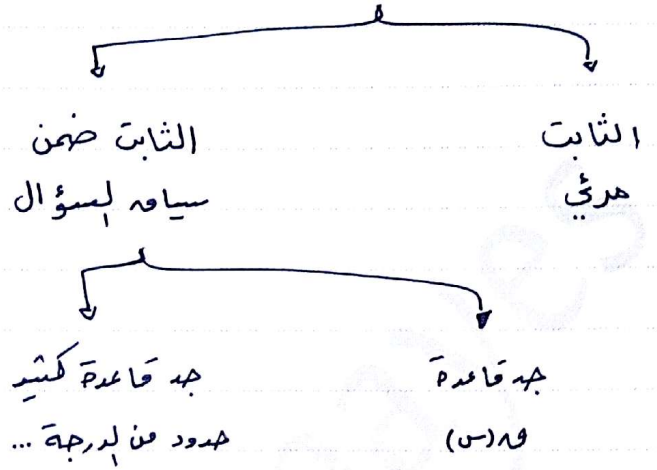 الثابت
مرئي
الثابت ضمن
سياق السؤال
جد قاعدة
ق(س)
جد قاعدة كثير
حدود من الدرجة ...